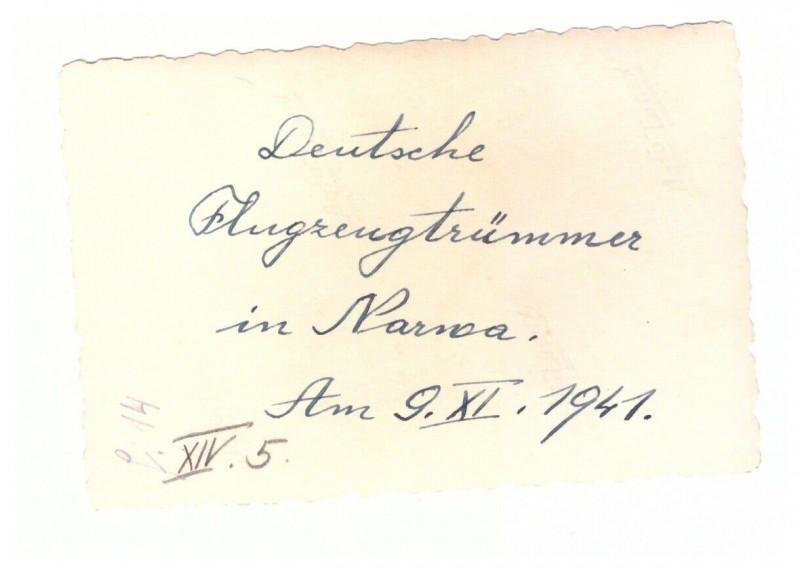 Deutsche
Flugzeugtrümmer
in Narwa.
Am 9. XI. 1941.
XIV. 5.